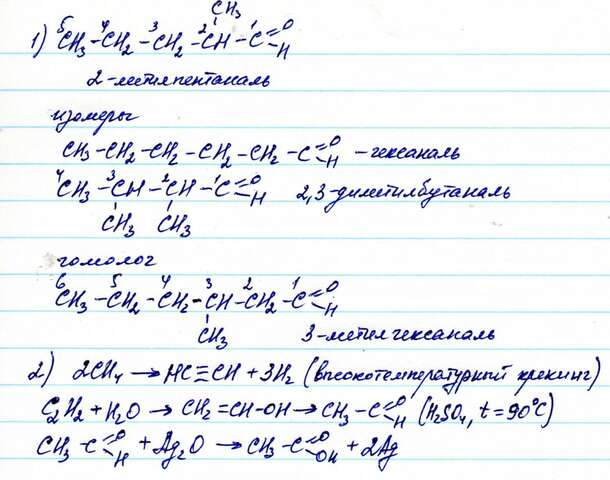 CH₃
1) ⁵CH₃ – ⁴CH₂ – ³CH₂ – ²CH – ¹C =O H
2-метилпентаналь
изомеры
CH₃–CH₂–CH₂–CH₂–CH₂–C =O H – гексаналь
⁴CH₃–³CH–²CH–¹C =O H 2,3-диметилбутаналь
CH₃ CH₃
гомолог
⁶CH₃–⁵CH₂–⁴CH₂–³CH–²CH₂–¹C =O H
CH₃ 3-метилгексаналь
2) 2CH₄ → HC≡CH + 3H₂ (высокотемпературный крекинг)
C₂H₂ + H₂O → CH₂=CH-OH → CH₃–C =O H (H₂SO₄, t=90°C)
CH₃–C =O H + Ag₂O → CH₃–C =O OH + 2Ag